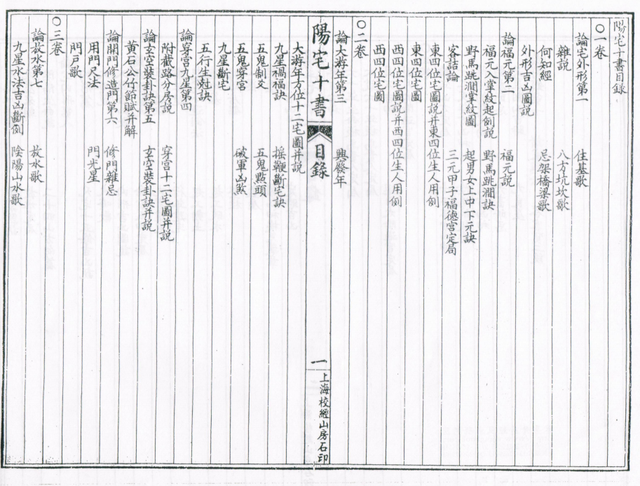 陽宅十書目錄
○一卷
論宅外形第一 住基歌
雜説 八方坑坎歌
何知經 忌架橋梁歌
外形吉凶圖説
論福元第二 福元説
福元入掌紋起例説 野馬跳澗訣
野馬跳澗掌紋圖 起男女上中下元訣
客詰論 三元甲子福德宮定局
東四位宅圖説并東四位生人用例
東四位宅圖
西四位宅圖説并西四位生人用例
西四位宅圖
○二卷
論大遊年第三 興發年
陽宅十書
目錄
一
上海校經山房石印
大遊年方位十二宅圖并説
九星禍福訣 摇鞭斷宅訣
五鬼制义 五鬼㸃頭
五鬼穿宮 破軍凶煞
九星斷宅
五行生尅訣
論穿宮九星第四
附截路分房説 穿宮十二宅圖并説
論玄空裝卦訣第五 玄空裝卦訣并説
黄石公竹節賦并解
論開門修造門第六 修門雜忌
用門尺法 門光星
門户歌
○三卷
論放水第七 放水歌
九星水法吉凶斷例 陰陽山水歌